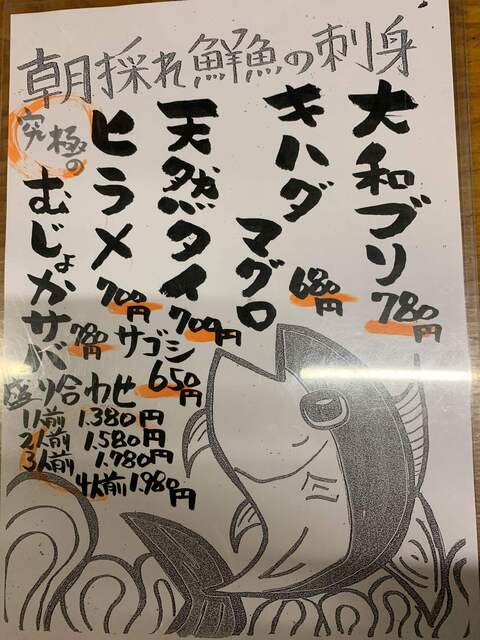 朝採れ鮮魚の刺身
大和ブリ
780円
キハダ
マグロ
680円
天然タイ
700円
ヒラメ
700円
サゴシ
650円
究極の
むじょかサバ
780円
盛り合わせ
1人前 1.380円
2人前 1.580円
3人前 1.780円
4人前 1.980円